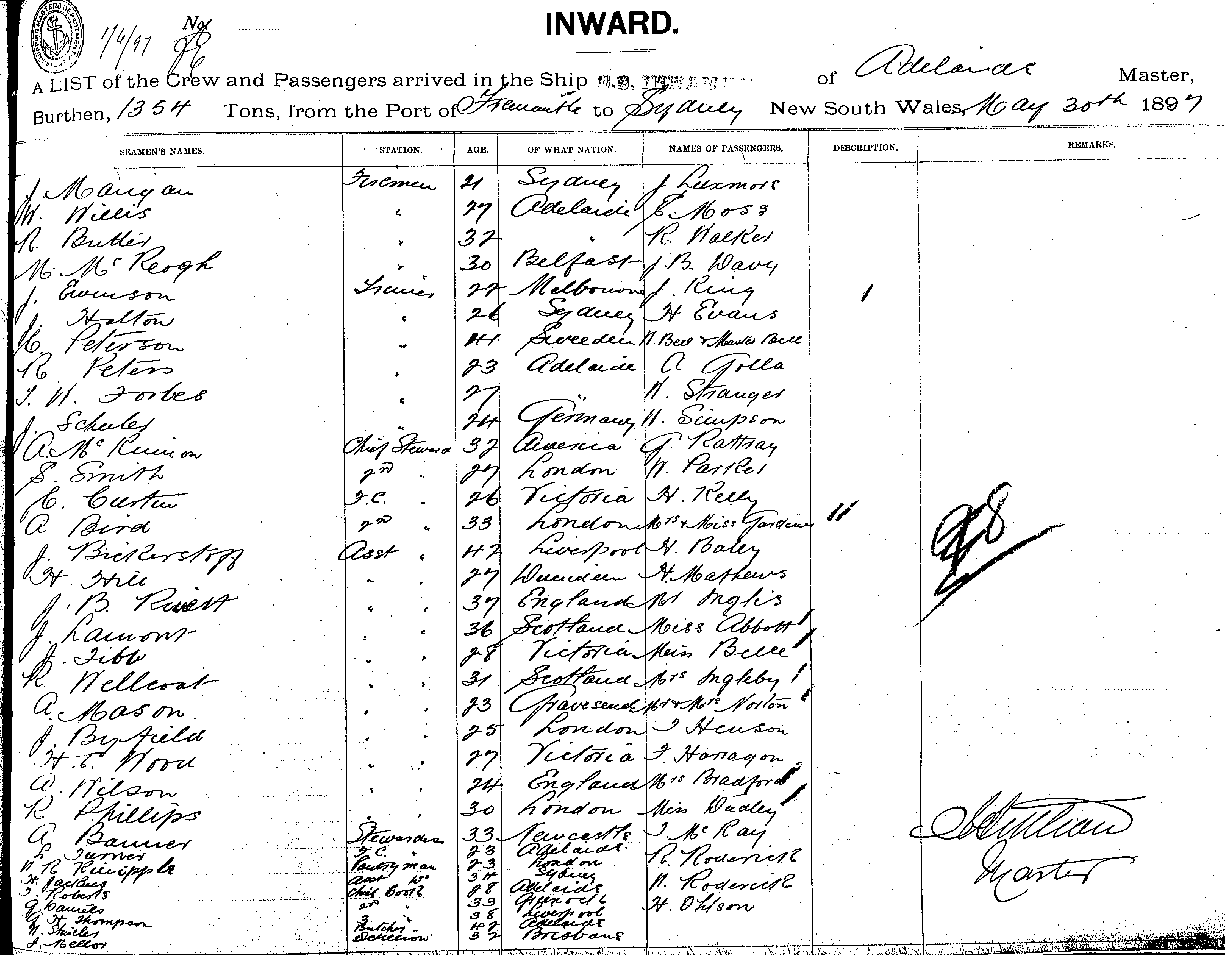 No
1/6/97 98
INWARD.
A LIST of the Crew and Passengers arrived in the Ship S.S. of Adelaide Master,
Burthen, 1354 Tons, from the Port of Fremantle to Sydney New South Wales, May 30th 1897
SEAMEN'S NAMES. STATION. AGE. OF WHAT NATION. NAMES OF PASSENGERS. DESCRIPTION. REMARKS.
J. Mangan Firemen 21 Sydney J Luxmore
W. Willis " 27 Adelaide E. Moss
R Butler " 32 " R. Walker
M. McKeogh " 30 Belfast J. B. Davy
J. Evenson 27 Melbourne J. King
J. Halton " 26 Sydney H Evans
C. Peterson " 41 Sweeden
R Peters " 23 Adelaide A Golla
T. H. Forbes " 27 " W. Stranger
J. Schuler " 24 Germany W. Simpson
A. McKinnon Chief Steward 32 G Rattray
S. Smith 2nd " 27 London W. Parker
C. Curtin F.C. " 26 Victoria H. Kelly
A Bird 2nd " 33 London Mrs & Miss Gardiner
J. Bickerstaff Asst " 42 Liverpool H. Baley
H. Hill " " 27 Dunedin H. Mathews
J. B. " " 37 England Mr Inglis
J. Lamont " " 36 Scotland Miss Abbott
J. Tibb " " 28 Victoria Miss Belle
R Wellcoat " " 31 Scotland Mrs Ingleby
A. Mason " " 23 Gravesend Mr & Mrs Norton
J. Byfield " " 25 London T Henson
H. C. Wood " " 27 Victoria F. Harragon
A. Wilson " " 24 England Mrs Bradford
R Phillips " " 30 London Miss Dudley
A Banner Stewardess 33 Newcastle J McKay
L. Turner F.C. 23 Adelaide R. Roderick
W R Pantryman 23 London
Asst Do 34 Sydney W. Roderick
J Roberts Chief Cook 28 Adelaide
G Daniels 2nd 33 Greenock H. Ohlson
G H Thompson 3 38 Liverpool
Butcher 42 Adelaide
J. Mellor 32 Brisbane
98
Master